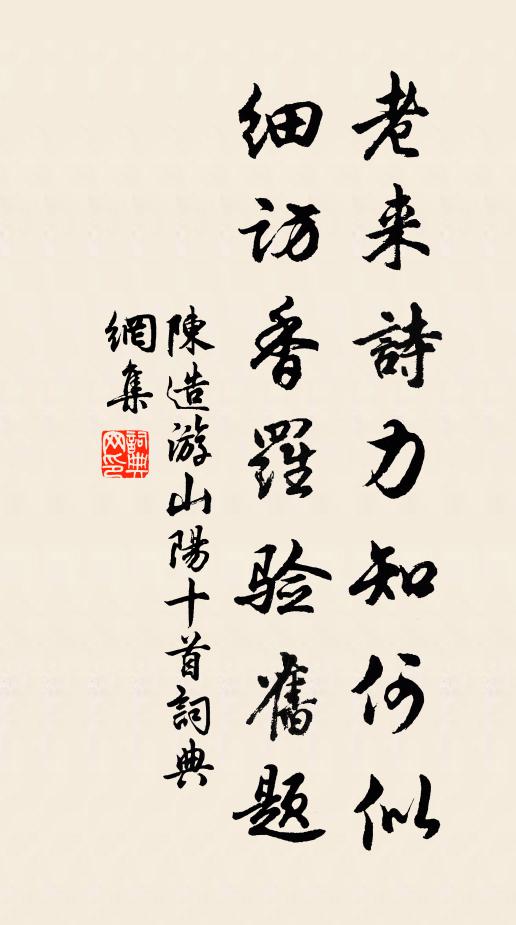 老来詩力知何似
细访香羅验舊题
陳造游山陽十首詞典
網集
詞典网印